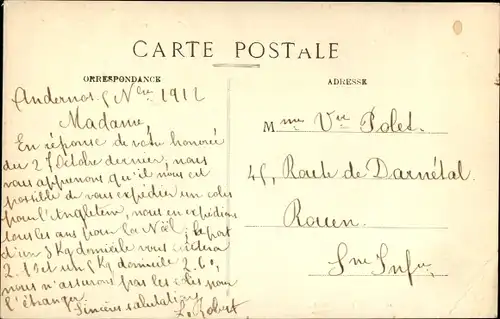 CARTE POSTALE
CORRESPONDANCE
ADRESSE
Andernos Nbre 1912
Madame,
En réponse de votre honorée
du 27 Octobre dernier, nous
vous apprenons qu'il nous est
possible de vous expédier un colis
pour l'Angleterre, nous en expédions
tous les ans pour la Noël; le port
d'un 3 Kg domicile vous
2. et un 5 Kg domicile 2.60,
nous n'assurons pas les colis pour
l'étranger.
Sincères salutations
L. Robert
Mme Vve Polet.
45, Route de Darnétal
Rouen.
Sne Infre